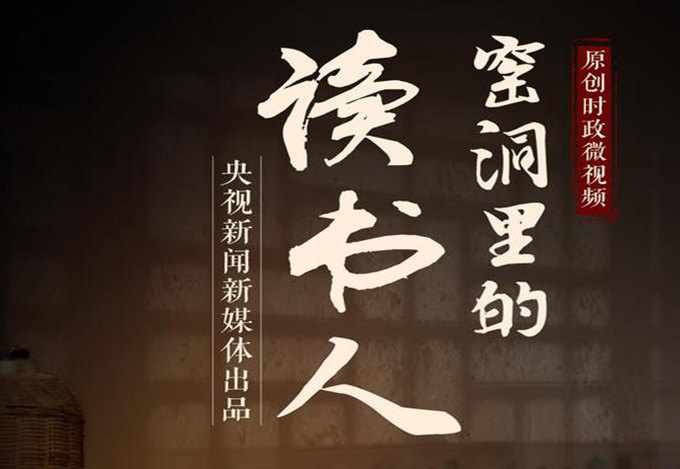 原创时政微视频
窑洞里的
读书人
央视新闻新媒体出品